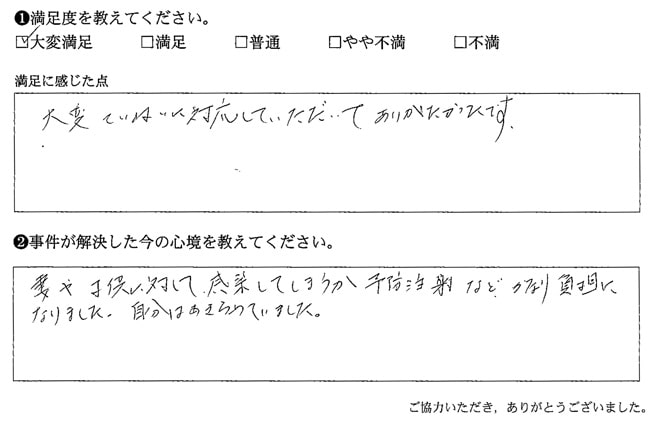 ❶満足度を教えてください。
☑大変満足 □満足 □普通 □やや不満 □不満
満足に感じた点
大変ていねいに対応していただいてありがたかったです.
❷事件が解決した今の心境を教えてください。
妻や子供に対して、感染してしまうか予防注射など、かなり負担に
なりました。自分はあきらめていました。
ご協力いただき，ありがとうございました。